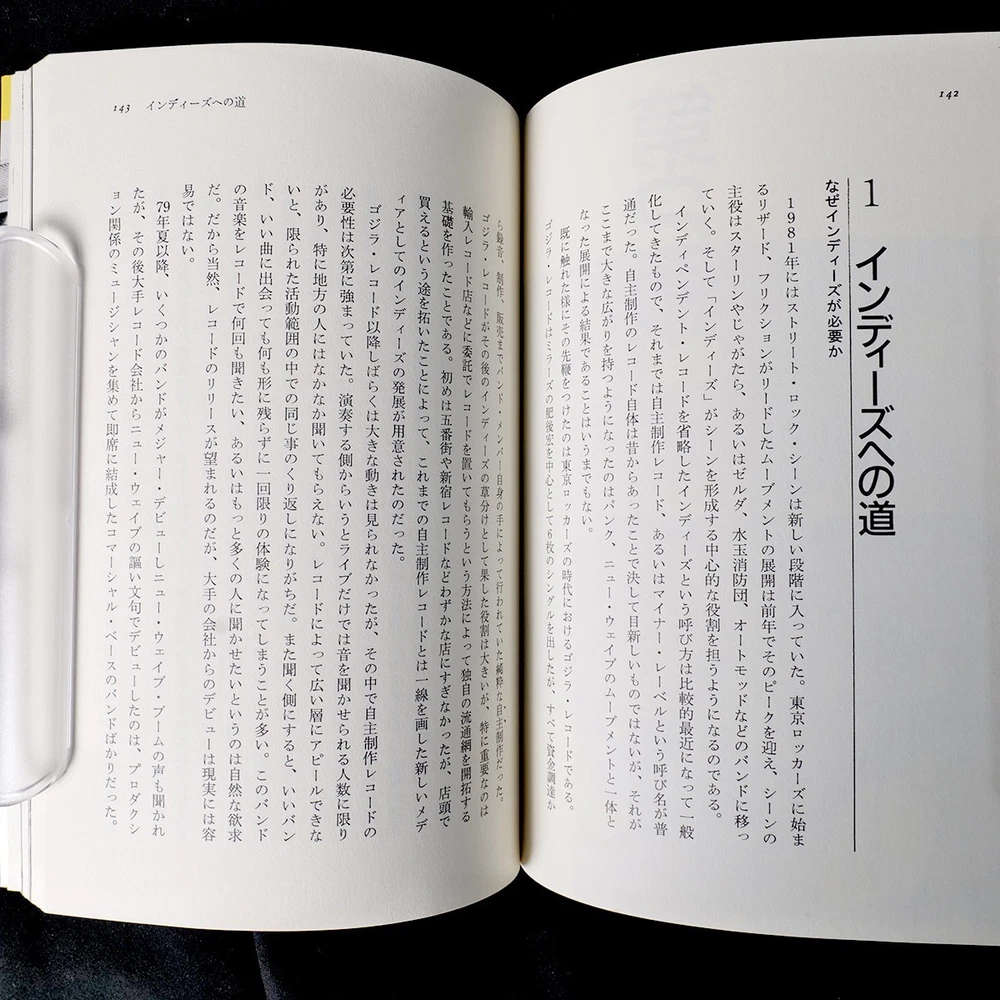 142
1 インディーズへの道
なぜインディーズが必要か
1981年にはストリート・ロック・シーンは新しい段階に入っていた。東京ロッカーズに始ま
るリザード、フリクションがリードしたムーブメントの展開は前年でそのピークを迎え、シーンの
主役はスターリンやじゃがたら、あるいはゼルダ、水玉消防団、オートモッドなどのバンドに移っ
ていく。そして「インディーズ」がシーンを形成する中心的な役割を担うようになるのである。
インディペンデント・レコードを省略したインディーズという呼び方は比較的最近になって一般
化してきたもので、それまでは自主制作レコード、あるいはマイナー・レーベルという呼び名が普
通だった。自主制作のレコード自体は昔からあったことで決して目新しいものではないが、それが
ここまで大きな広がりを持つようになったのはパンク、ニュー・ウェイブのムーブメントと一体と
なった展開による結果であることはいうまでもない。
既に触れた様にその先鞭をつけたのは東京ロッカーズの時代におけるゴジラ・レコードである。
ゴジラ・レコードはミラーズの肥後宏を中心として6枚のシングルを出したが、すべて資金調達か
143 インディーズへの道
ら録音、制作、販売までバンド・メンバー自身の手によって行われていた純粋な自主制作だった。
ゴジラ・レコードがその後のインディーズの草分けとして果した役割は大きいが、特に重要なのは
輸入レコード店などに委託でレコードを置いてもらうという方法によって独自の流通網を開拓する
基礎を作ったことである。初めは五番街や新宿レコードなどわずかな店にすぎなかったが、店頭で
買えるという途を拓いたことによって、これまでの自主制作レコードとは一線を画した新しいメデ
ィアとしてのインディーズの発展が用意されたのだった。
ゴジラ・レコード以降しばらくは大きな動きは見られなかったが、その中で自主制作レコードの
必要性は次第に強まっていた。演奏する側からいうとライブだけでは音を聞かせられる人数に限り
があり、特に地方の人にはなかなか聞いてもらえない。レコードによって広い層にアピールできな
いと、限られた活動範囲の中での同じ事のくり返しになりがちだ。また聞く側にすると、いいバン
ド、いい曲に出会っても何も形に残らずに一回限りの体験になってしまうことが多い。このバンド
の音楽をレコードで何回も聞きたい、あるいはもっと多くの人に聞かせたいというのは自然な欲求
だ。だから当然、レコードのリリースが望まれるのだが、大手の会社からのデビューは現実には容
易ではない。
79年夏以降、いくつかのバンドがメジャー・デビューしニュー・ウェイブ・ブームの声も聞かれ
たが、その後大手レコード会社からニュー・ウェイブの謳い文句でデビューしたのは、プロダクシ
ョン関係のミュージシャンを集めて即席に結成したコマーシャル・ベースのバンドばかりだった。